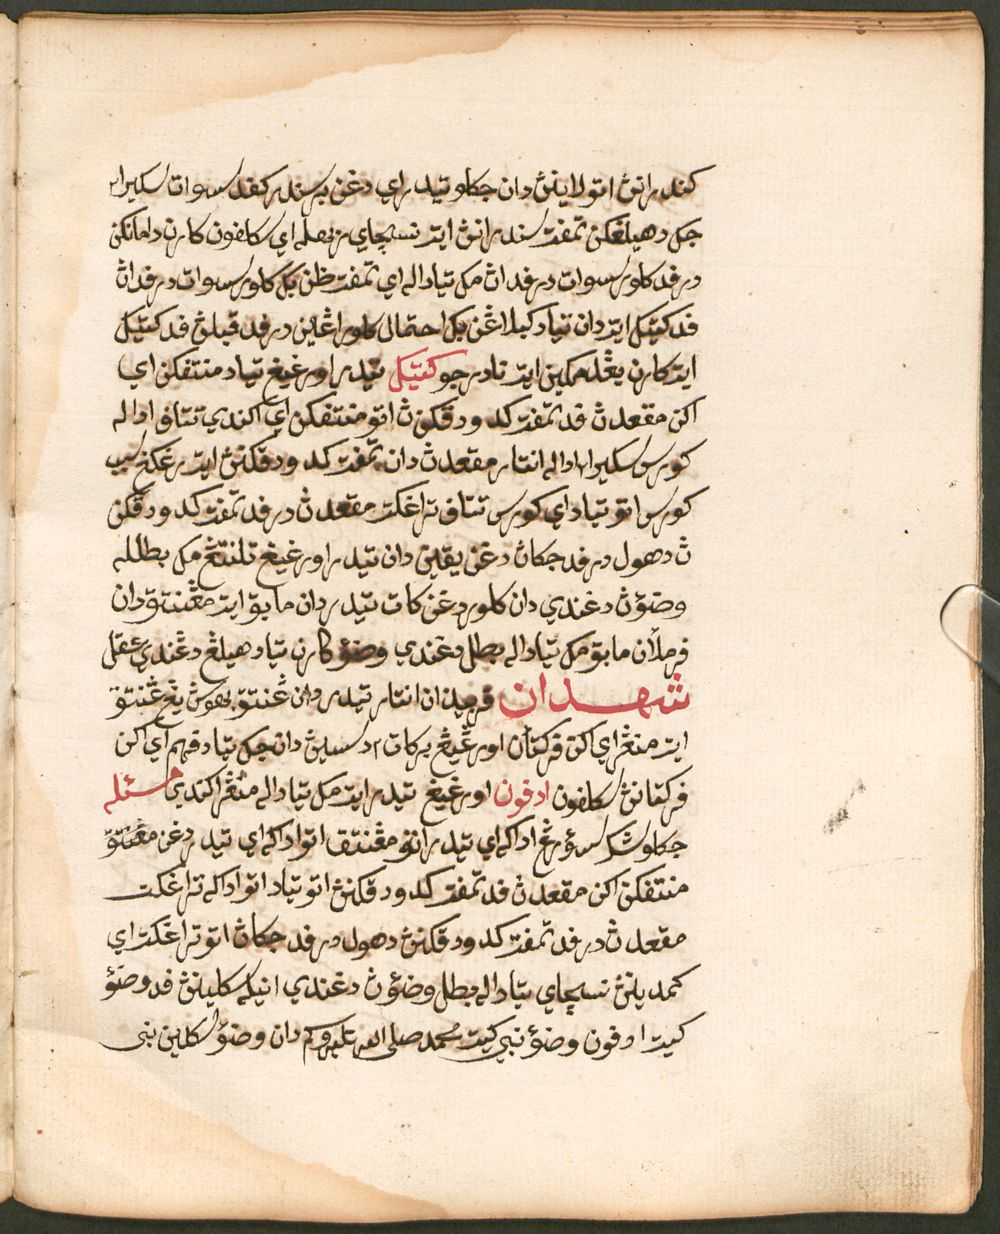 كندراڽ اتو لاينڽ دان جكلو تيدر اي دغن برسندر كفد سسوات سكيرا٢
جك دهيلڠكن تمفت سندرانڽ ايت نسچاي ربهله اي سكلفون كارن دامانكن
درفد كلور سسوات درفد اڽ مك تياداله اي تمفت ظن بكي كلور سسوات درفد اڽ
فد كتيك ايت دان تياد كبلاڠن بكي احتمال كلور اڠين درفد قبلڽ فد كتيك
ايت كارن يڠدمكين ايت نادر جو كتيك تيدر اورڠيڠ تياد منتفكن اي
اكن مقعدڽ فد تمفت كدودقكنڽ اتو منتفكن اي اكندي تتافي اداله
كورس سكيرا٢ اداله انتار مقعدڽ دان تمفت كدودقكنڽ ايت رڠڬڠ سبب
كورس اتو تياد اي كورس تتافي تراڠكت مقعدڽ درفد تمفت كدودقكن
ڽ دهول درفد جكاڽ دغن يقين دان تيدر اورڠيڠ تلنتڠ مك بطلله
وضوءڽ دغندي دان كلور دغن كات تيدر دان مابق ايت مڠنتق دان
فرملأن مابق مك تياداله بطل دغندي وضوء كارن تياد هيلڠ دڠندي عقل
شهدان فربيذان انتار تيدر دان مڠنتق بهوس يڠ مڠنتق
ايت منڠر اي اكن فركتأن اورڠيڠ بركات٢ دسيسين دان جك تياد فهم اي اكن
فركتانڽ سكلفون ادفون اورڠيڠ تيدر ايت مك تياداله منڠر اكندي مسئله
جكلو شك سؤرڠ اداكه اي تيدر اتو مڠنتق اتو اداكه اي تيدر دغن مڠنتق
منتفكن اكن مقعدڽ فد تمفت كدودقكنڽ اتو تياد اتو اداله تراڠكت
مقعدڽ درفد تمفت كدودقكنڽ دهول درفد جكاڽ اتو تراڠكت اي
كمدينڽ نسچاي تياداله بطل وضوءڽ دغندي انيله سكلينڽ فد وضوء
كيت ادفون وضوء نبي كيت محمد صلى الله عليه وسلم دان وضوء سكلين نبي